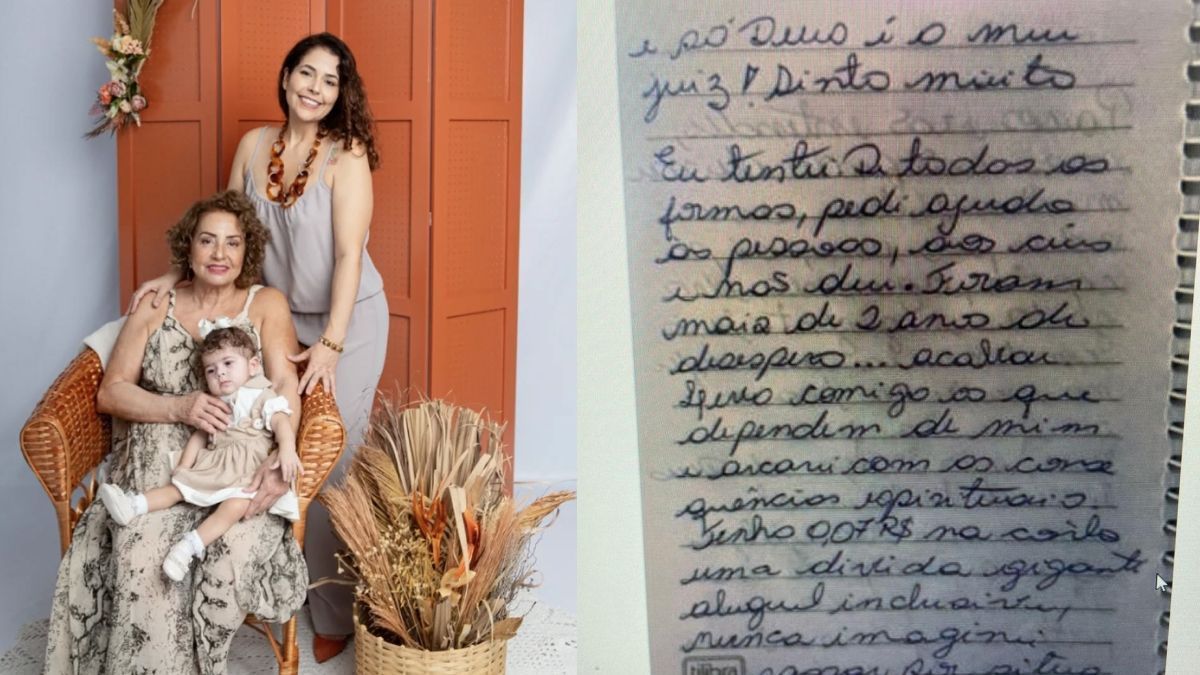 e só Deus é o meu
juiz! Sinto muito
Eu tentei de todas as
formas, pedi ajuda
às pessoas, aos céus
e nos deu. Foram
mais de 2 anos de
desespero... acabou
Levo comigo os que
dependem de mim
e arcarei com as conse
quências espirituais.
Tenho 0,07 R$ na conta
uma divida gigante
aluguel inclusive,
nunca imaginei
tilibra passar por situa